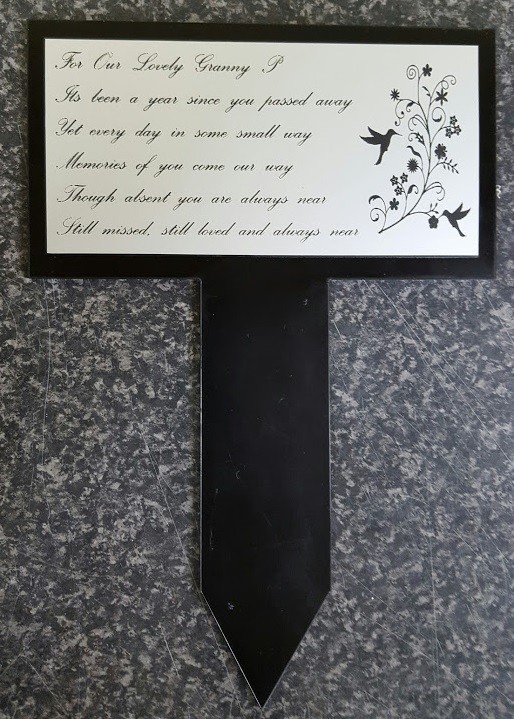 For Our Lovely Granny P
Its been a year since you passed away
Yet every day in some small way
Memories of you come our way
Though absent you are always near
Still missed, still loved and always near